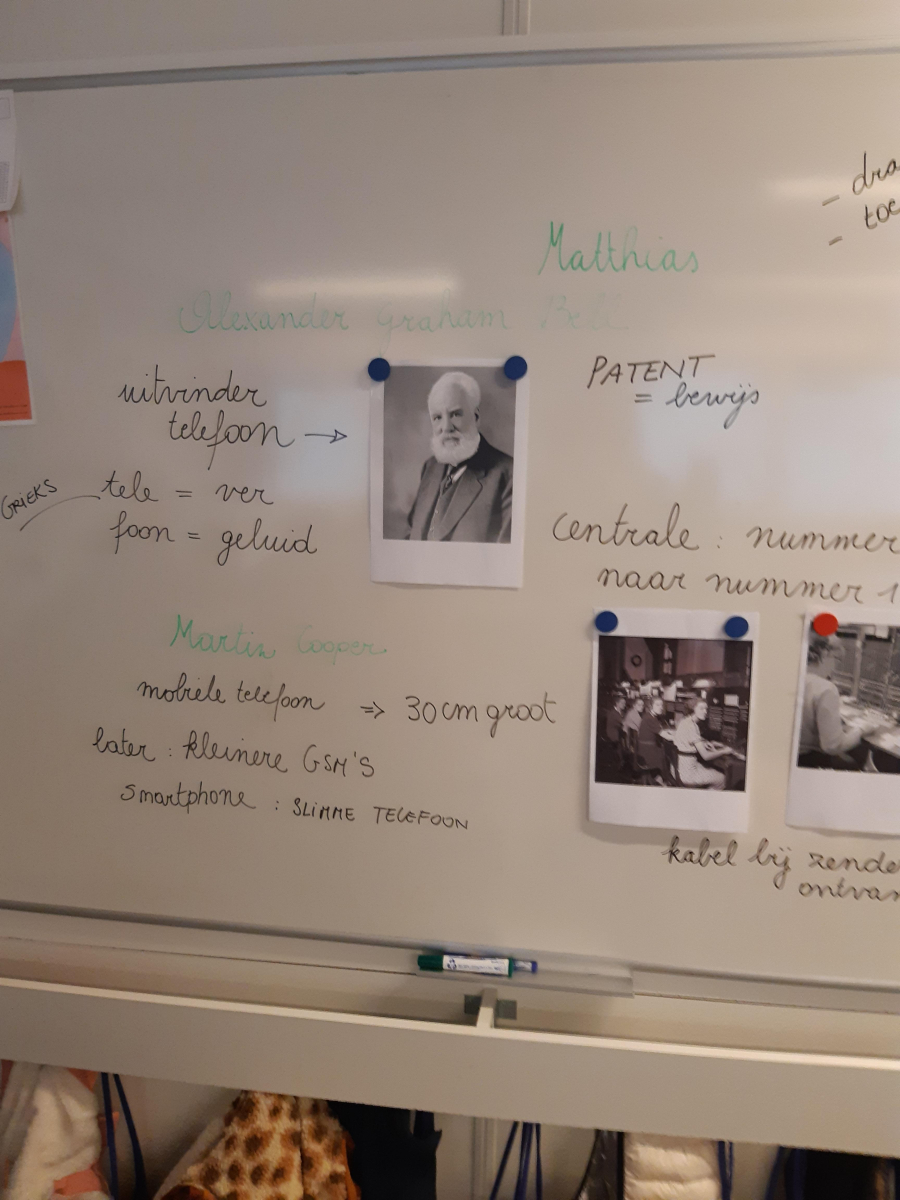 Matthias
Alexander Graham Bell
uitvinder
telefoon →
PATENT
= bewijs
GRIEKS
tele = ver
foon = geluid
Centrale : nummer
naar nummer 1
Martin Cooper
mobiele telefoon ⇒ 30cm groot
later : kleinere GSM'S
smartphone : SLIMME TELEFOON
kabel bij zende
ontvan
- dra
- toe